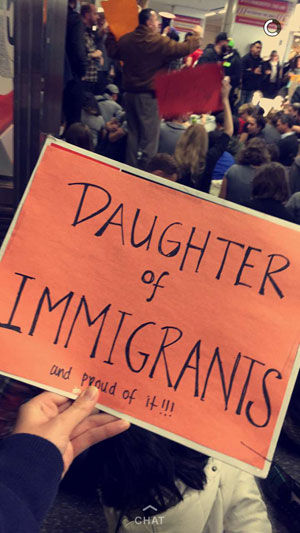 DAUGHTER
of
IMMIGRANTS
and proud of it!!!
CHAT